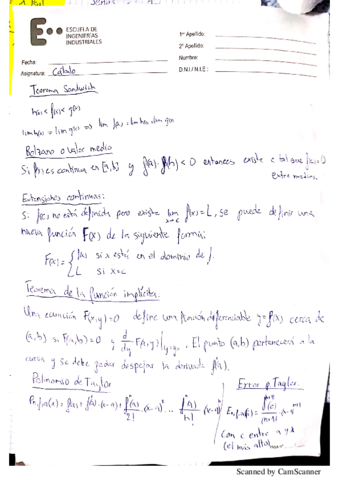 ESCUELA DE
INGENIERÍAS
INDUSTRIALES
1er Apellido:
2º Apellido:
Fecha: Nombre:
Asignatura: Cálculo D.N.I / N.I.E.:
Teorema Sandwich
h(x) < f(x) < g(x)
lim h(x) = lim g(x) => lim f(x) = lim h(x) = lim g(x)
Bolzano o Valor medio
Si f(x) es continua en [a,b] y f(a)·f(b) < 0 entonces existe c tal que f(c) = 0
entre medias.
Extensiones continuas:
Si f(c) no está definida pero existe lim f(x) = L, se puede definir una
x→c
nueva función F(x) de la siguiente forma:
F(x) = { f(x) si x está en el dominio de f.
L si x=c
Teorema de la función implícita.
Una ecuación F(x,y)=0 define una función diferenciable y=f(x) cerca de
(a,b) si F(a,b)=0 y d/dy F(a,y)|y=b. El punto (a,b) pertenecerá a la
curva y se debe poder despejar la derivada f'(a).
Polinomio de Taylor
Error de Taylor.
Pn,f,a(x) = f(a) + f'(a)·(x-a) + f''(a)/2! ·(x-a)² + fⁿ(a)/n! (x-a)ⁿ
con c entre a y x
Scanned by CamScanner